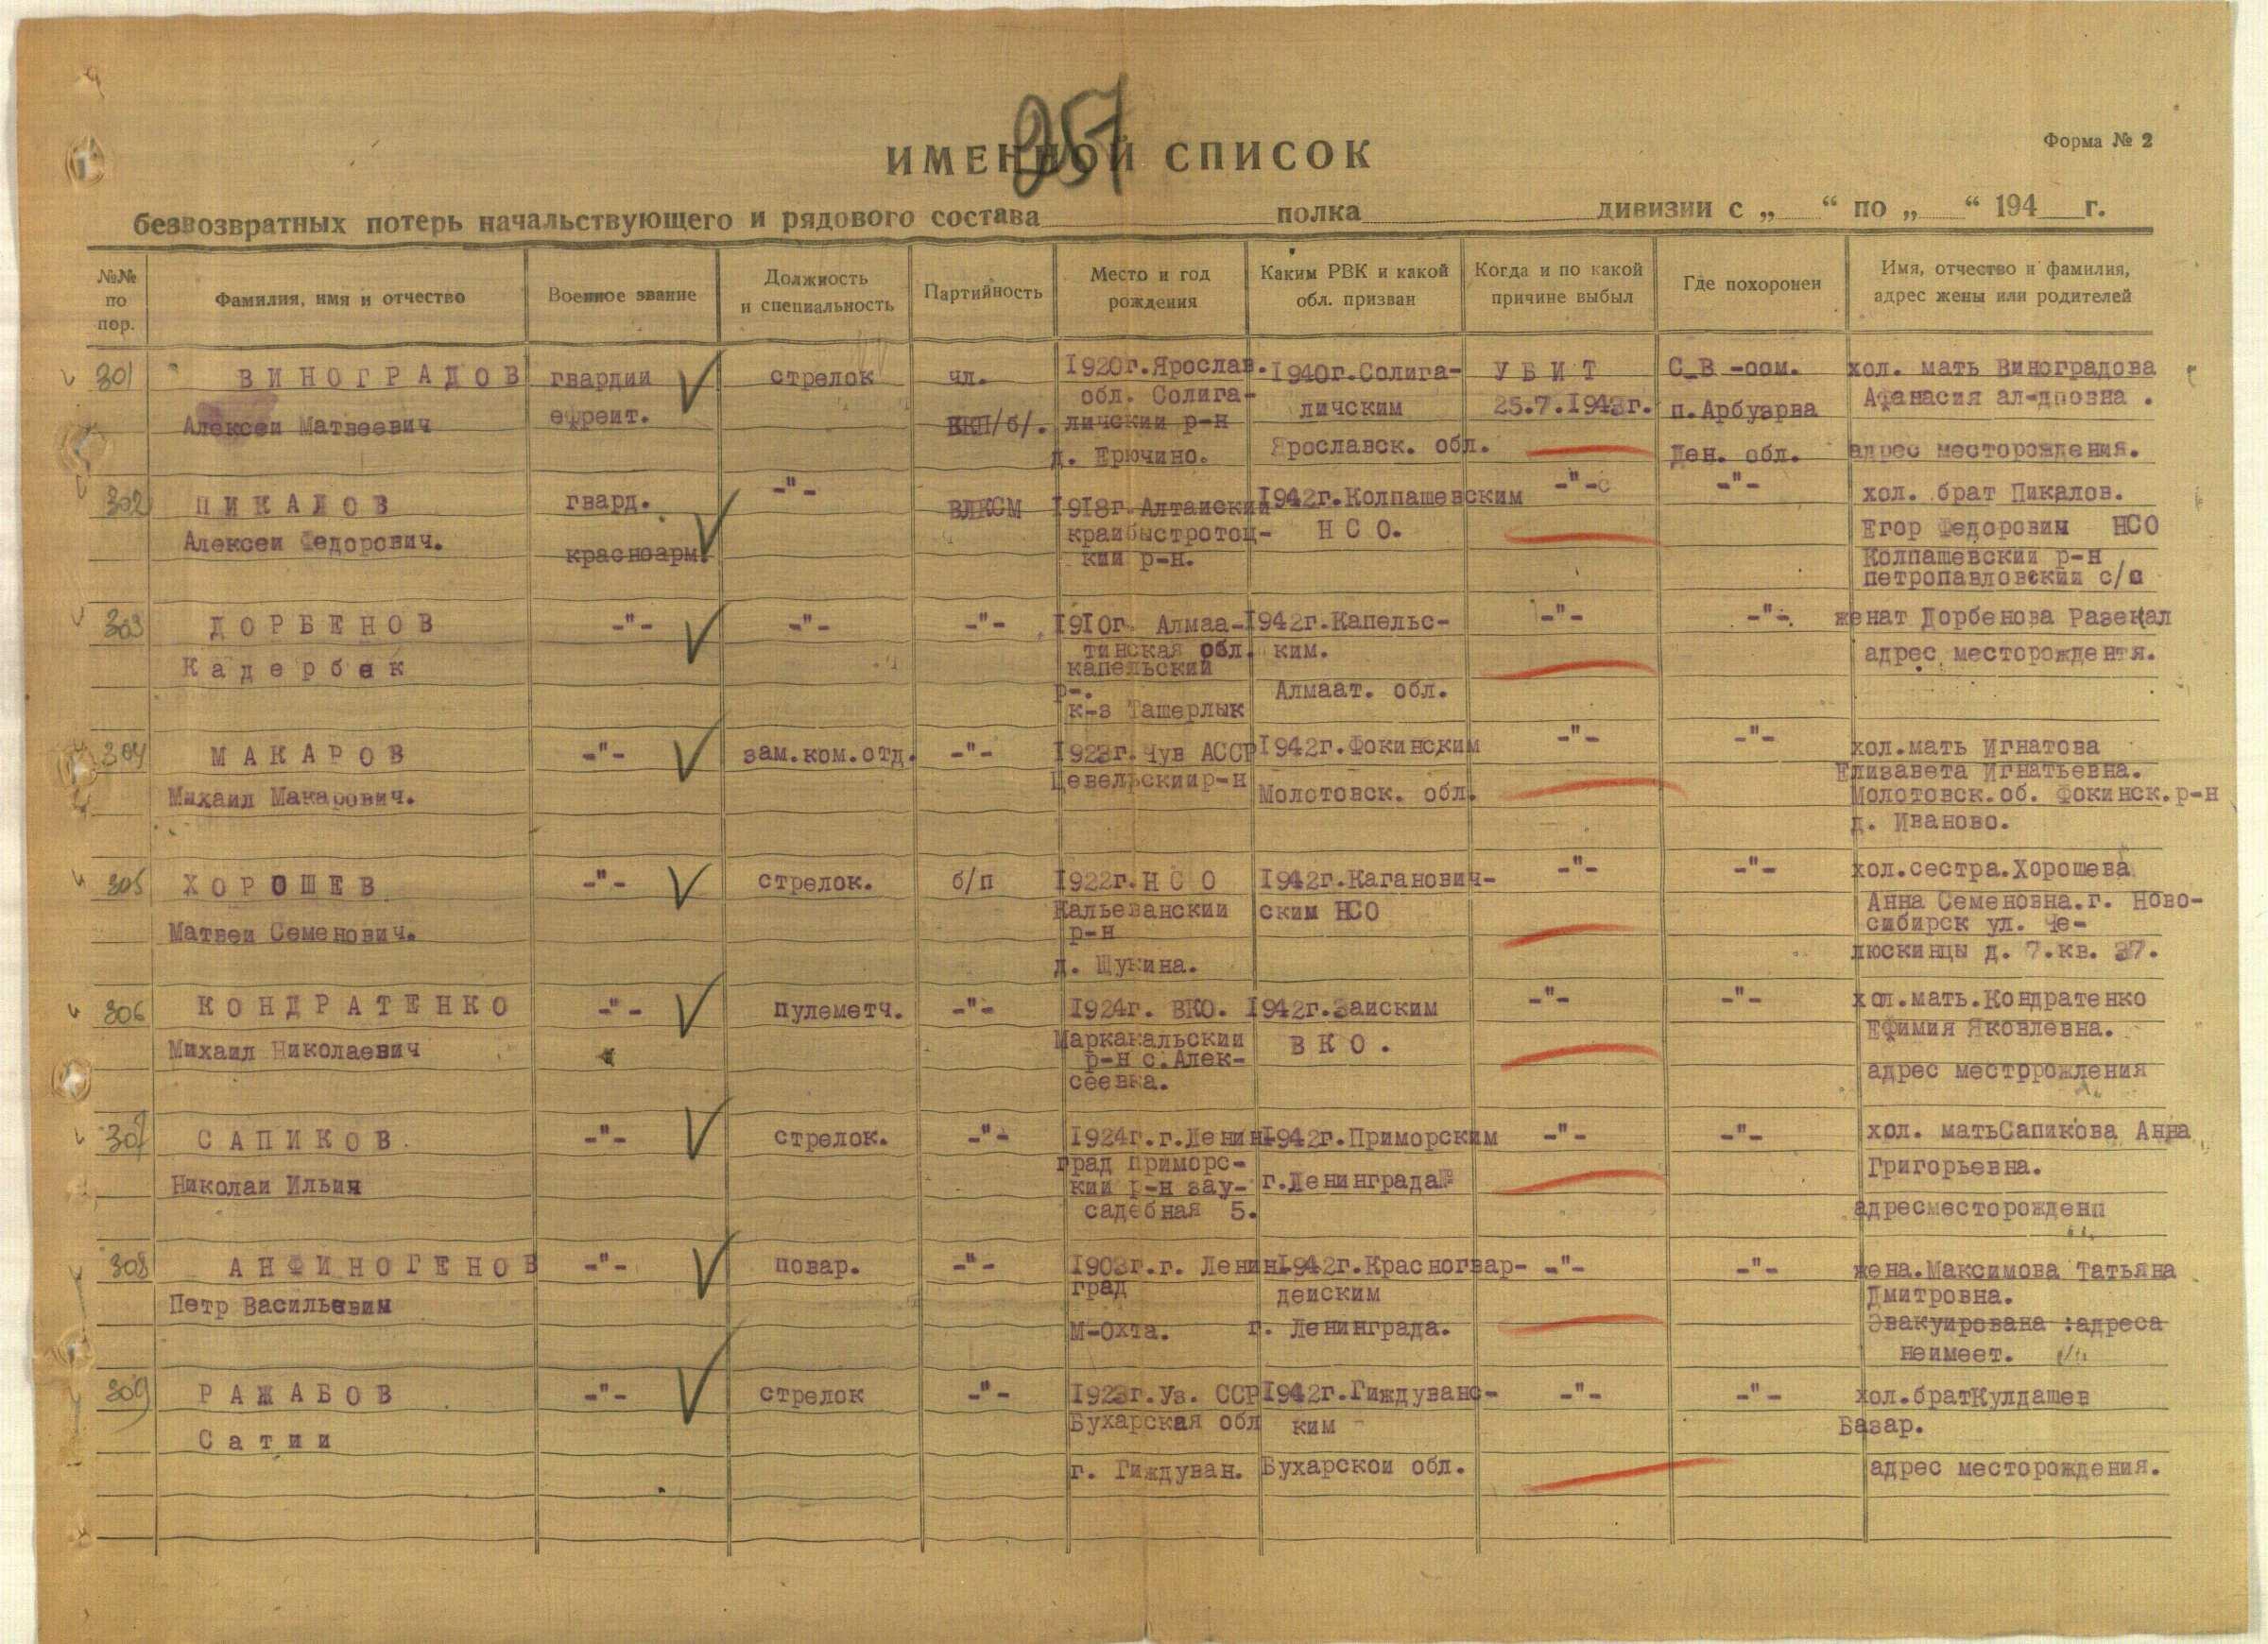 257
ИМЕННОЙ СПИСОК
Форма № 2
безвозвратных потерь начальствующего и рядового состава полка дивизии с „ “ по „ “ 194 г.
№№ по пор.
Фамилия, имя и отчество
Военное звание
Должность и специальность
Партийность
Место и год рождения
Каким РВК и какой обл. призван
Когда и по какой причине выбыл
Где похоронен
Имя, отчество и фамилия, адрес жены или родителей
301
ВИНОГРАДОВ
Алексеи Матвеевич
гвардии
ефреит.
стрелок
чл.
ВКП/б/.
1920г.Ярослав.
обл. Солига-
личскии р-н
д. Ерючино.
1940г.Солига-
личским
Ярославск. обл.
УБИТ
25.7.1943г.
С-В -оом.
п.Арбузрва
Лен. обл.
хол. мать Виноградова
Афанасия ал-дповна .
адрес месторождения.
302
ПИКАЛОВ
Алексеи Федорович.
гвард.
красноарм.
-"-
ВЛКСМ
1918г.Алтаискии
краибыстротоц-
кии р-н.
1942г.Колпашевским
Н С О.
-"-с
-"-
хол. брат Пикалов.
Егор Федоровим НСО
Колпашевскии р-н
петропавловскии с/с
303
ДОРБЕНОВ
Кадербек
-"-
-"-
-"-
1910г. Алмаа-
тинская обл.
капельскии
р-.
к-з Ташерлык
1942г.Капельс-
ким.
Алмаат. обл.
-"-
-"-.
женат Дорбенова Разекал
адрес месторождентя.
304
МАКАРОВ
Михаил Макарович.
-"-
зам.ком.отд.
-"-
1923г.Чув АССР
Цевельскиир-н
1942г.Фокинским
Молотовск. обл.
-"-
-"-
хол.мать Игнатова
Елизавета Игнатьевна.
Молотовск.об. Фокинск.р-н
д. Иваново.
305
ХОРОШЕВ
Матвеи Семенович.
-"-
стрелок.
б/п
1922г.Н С О
Кальеванскии
р-н
д. Щукина.
1942г.Каганович-
ским НСО
-"-
-"-
хол.сестра.Хорошева
Анна Семеновна.г. Ново-
сибирск ул. Че-
люскинцы д. 7.кв. 37.
306
КОНДРАТЕНКО
Михаил Николаевич
-"-
пулеметч.
-"-
1924г. ВКО.
Маркакальскии
р-н с.Алек-
сеевка.
1942г.Заиским
В К О .
-"-
-"-
хол.мать.Кондратенко
Ефимия Яковлевна.
адрес месторождения
307
САПИКОВ.
Николаи Ильич
-"-
стрелок.
-"-
1924г.г.Ленин-
град приморс-
кии р-н зау-
садебная 5.
1942г.Приморским
г.Ленинграда
-"-
-"-
хол. матьСапикова Анна
Григорьевна.
адресместорождени
308
АНФИНОГЕНОВ
Петр Васильевим
-"-
повар.
-"-
1903г.г. Ленин-
град
М-Охта.
1942г.Красногвар-
деиским
г. Ленинграда.
-"-
-"-
жена.Максимова Татьяна
Дмитровна.
Эвакуирована :адреса
неимеет.
309
РАЖАБОВ
Сатии
-"-
стрелок
-"-
1923г.Уз. ССР
Бухарская обл
г. Гиждуван.
1942г.Гиждуванс-
ким
Бухарскои обл.
-"-
-"-
хол.братКулдашев
Базар.
адрес месторождения.